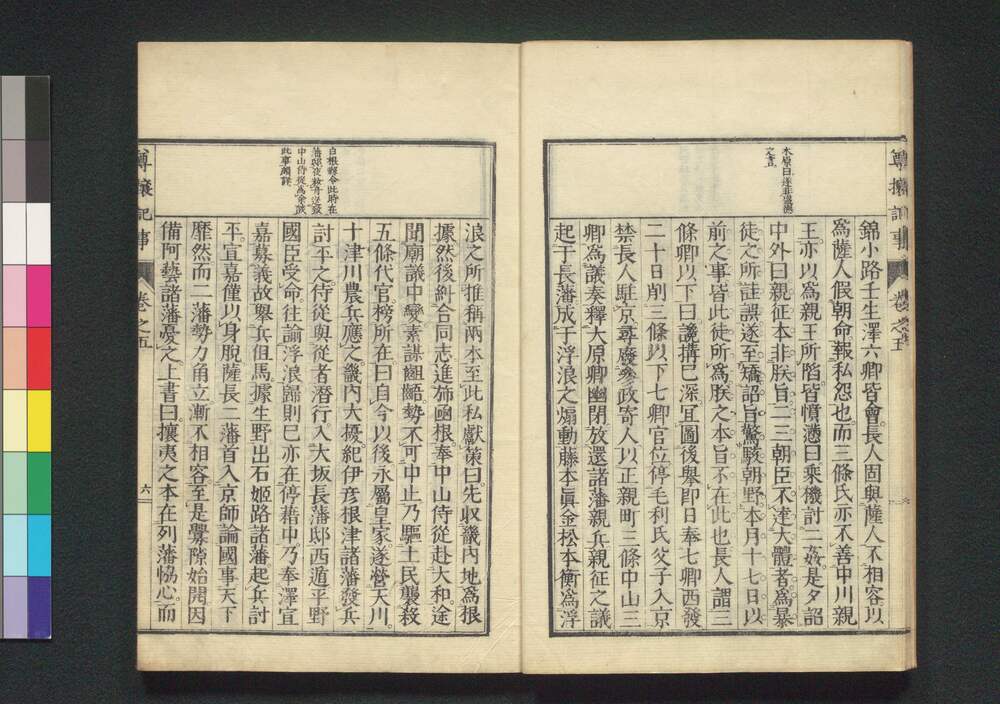 尊攘記事
卷之五
錦小路壬生澤六卿皆會長人固與薩人不相容以
爲薩人假朝命報私怨也而三條氏亦不善中川親
王亦以爲親王所陷皆憤懣曰乘機討二姦是夕詔
中外曰親征本非朕旨二三朝臣不達大體者爲暴
徒之所詿誤遂至矯詔旨驚駭朝野本月十七日以
前之事皆此徒所爲朕之本旨不在此也長人謂三
條卿以下曰讒搆已深宜圖後舉卽日奉七卿西發
二十日削三條以下七卿官位停毛利氏父子入京
禁長人駐京尋廢參政寄人以正親町三條中山三
卿爲議奏釋大原卿幽閉放還諸藩親兵親征之議
起于長藩成于浮浪之煽動藤本眞金松本衡爲浮
浪之所推稱兩本至此私獻策曰先收畿內地爲根
據然後糾合同志進師凾根奉中山侍從赴大和途
聞廟議中變素謀齟齬勢不可中止乃驅土民襲殺
五條代官榜所在曰自今以後永屬皇家遂營天川
十津川農兵應之畿內大擾紀伊彦根津諸藩發兵
討平之侍從與從者潛行入大坂長藩邸西遁平野
國臣受命往諭浮浪歸則已亦在停藉中乃奉澤宣
嘉募義故舉兵但馬據生野出石姬路諸藩起兵討
平宣嘉僅以身脫薩長二藩首入京師論國事天下
靡然而二藩勢力角立漸不相容至是釁隙始開因
備阿藝諸藩憂之上書曰攘夷之本在列藩恊心而
白根縣令此時在
中山侍從爲余
此事頗詳
尊攘記事
卷之五
六